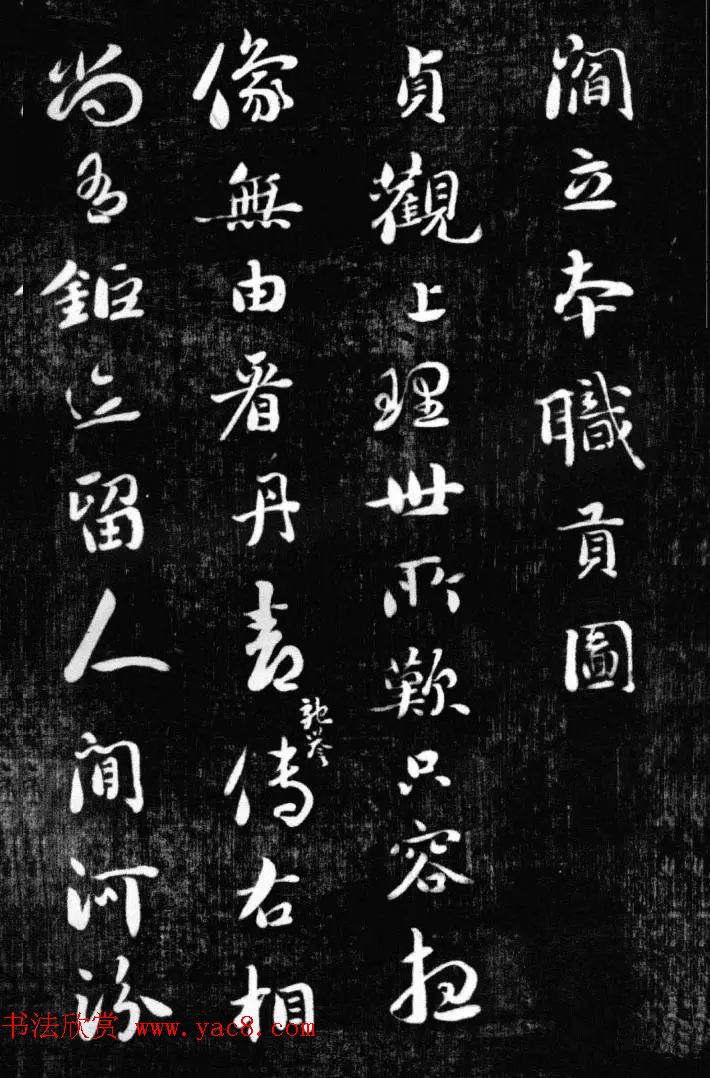 閻立本職貢圖
貞觀上理世所歎只容想
像無由看丹青傳右相
馳譽
尚有鉅迹留人間河汾
书法欣赏 www.yac8.com